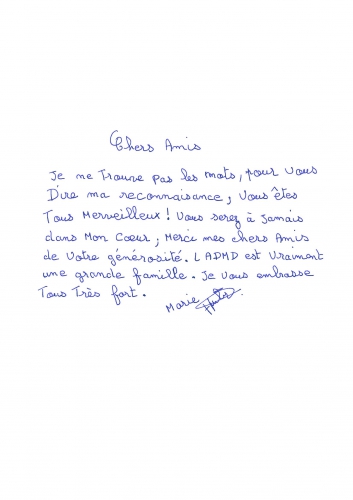 Chers Amis
Je ne Trouve pas les mots, pour vous
Dire ma reconnaisance, Vous êtes
Tous Merveilleux ! Vous serez à Jamais
dans Mon Coeur, Merci mes chers Amis
de Votre générosité. L ADMD est Vraiment
une grande famille. Je Vous embrasse
Tous Très fort.
Marie